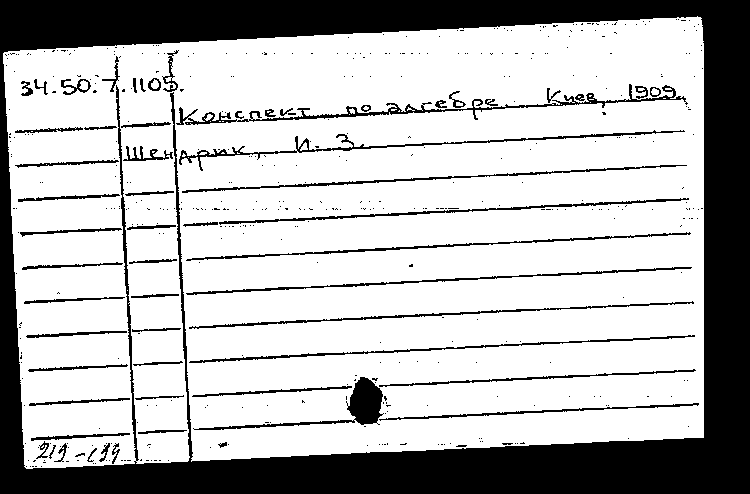 34.50.7.1105.
Конспект по алгебре. Киев, 1909.
Шендрик, И. З.